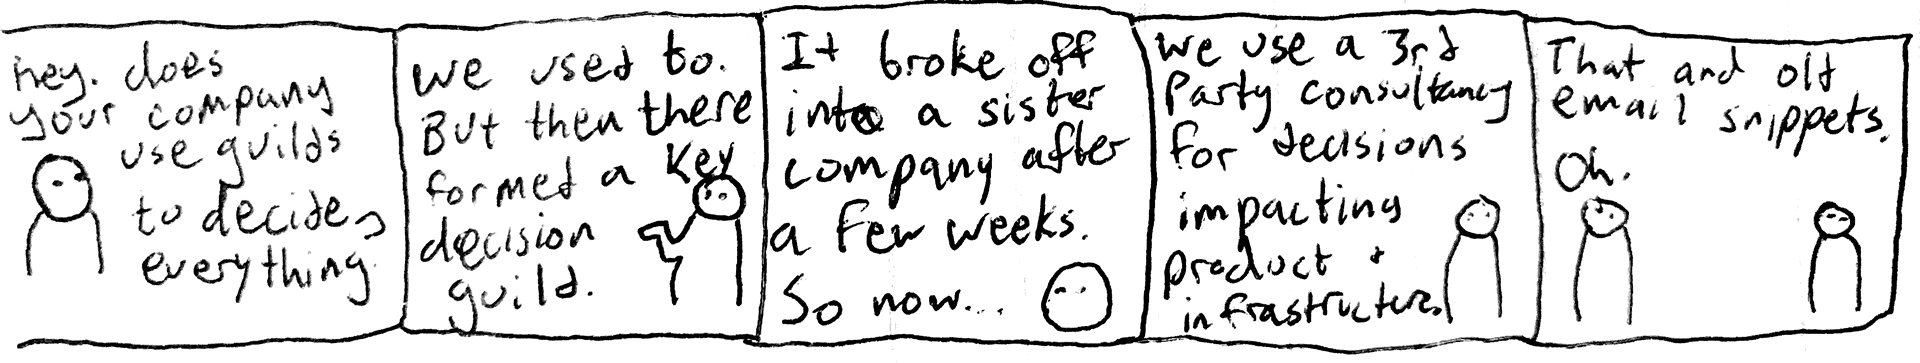 hey. does
your company
use guilds
to decide
everything
we used to.
But then there
formed a key
decision
guild.
It broke off
into a sister
company after
a few weeks.
So now...
we use a 3rd
Party consultancy
for decisions
impacting
product +
infrastructure.
That and old
email snippets.
Oh.